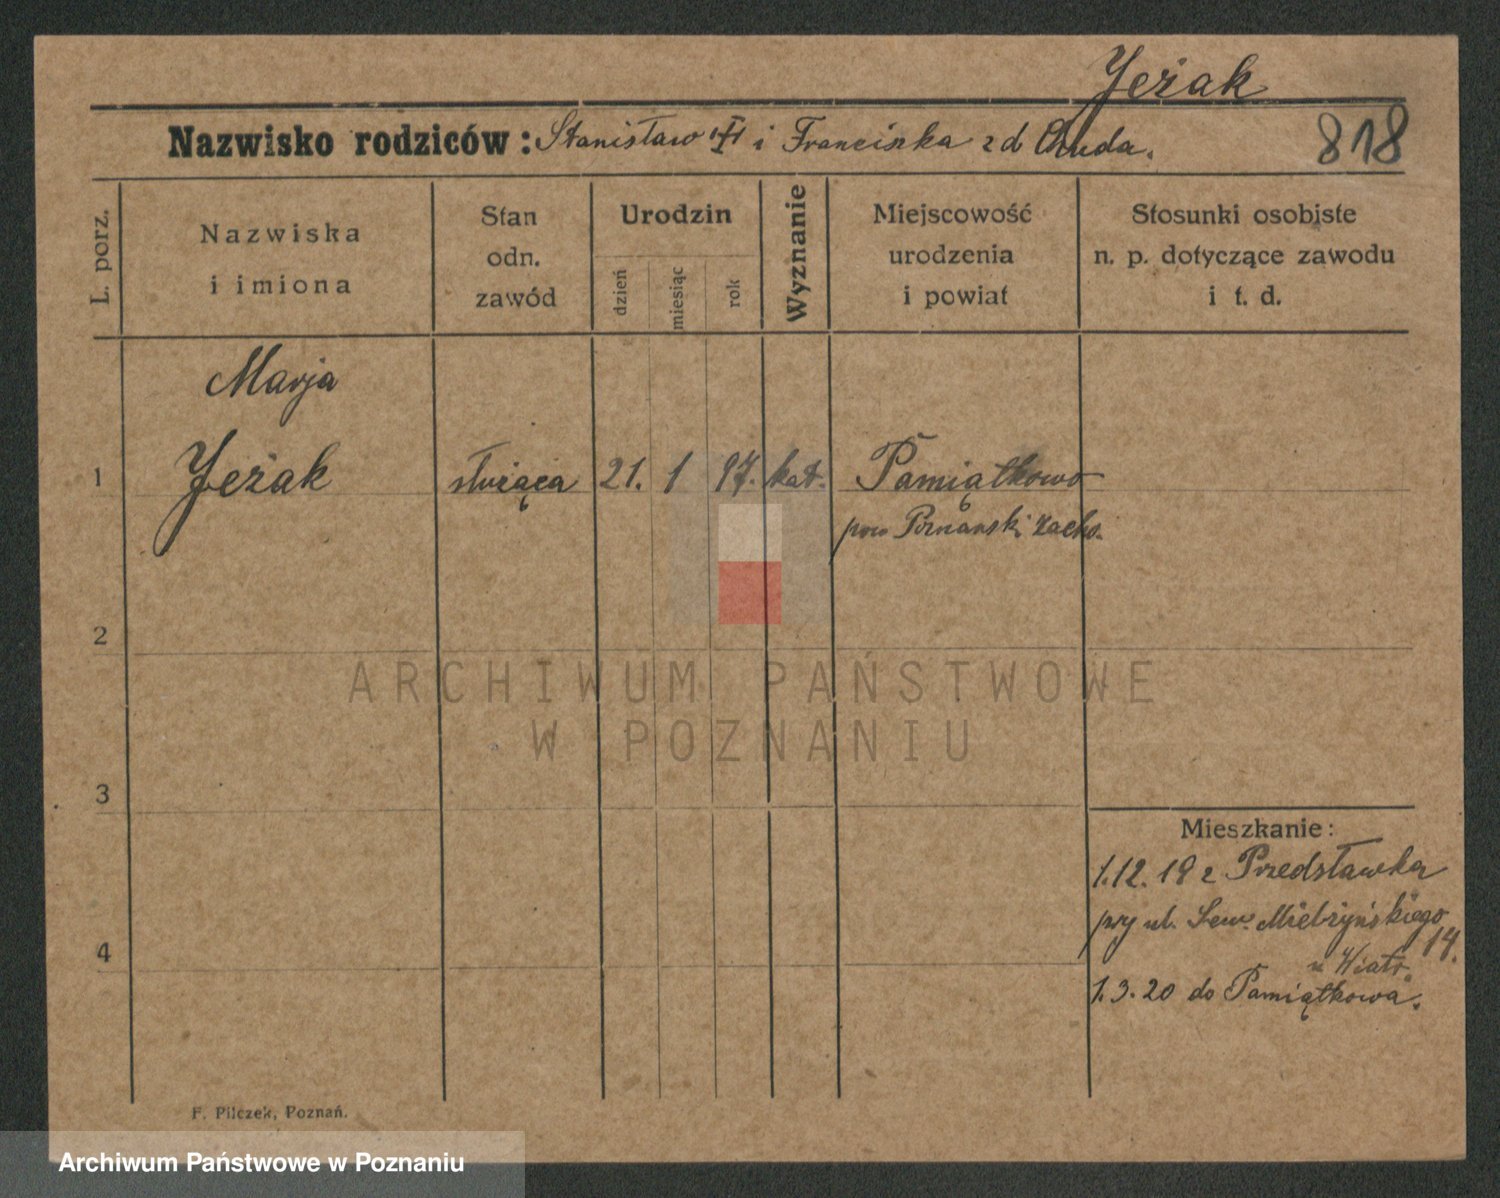 Jeżak
Nazwisko rodziców: Stanisław i Franciszka z d Chuda.
818
L. porz.
Nazwiska
i imiona
Stan
odn.
zawód
Urodzin
dzień
miesiąc
rok
Wyznanie
Miejscowość
urodzenia
i powiat
Stosunki osobiste
n. p. dotyczące zawodu
i t. d.
Marja
1 Jeżak służąca 21. 1 97. kat. Pamiątkowo
pow Poznański Zacho.
2
ARCHIWUM PAŃSTWOWE
W POZNANIU
3
Mieszkanie:
1.12.19 z Przedstawka
przy ul. Sew. Mielżyńskiego
14.
4
u Wiatr.
1.3.20 do Pamiątkowa.
F. Pilczek, Poznań.
Archiwum Państwowe w Poznaniu